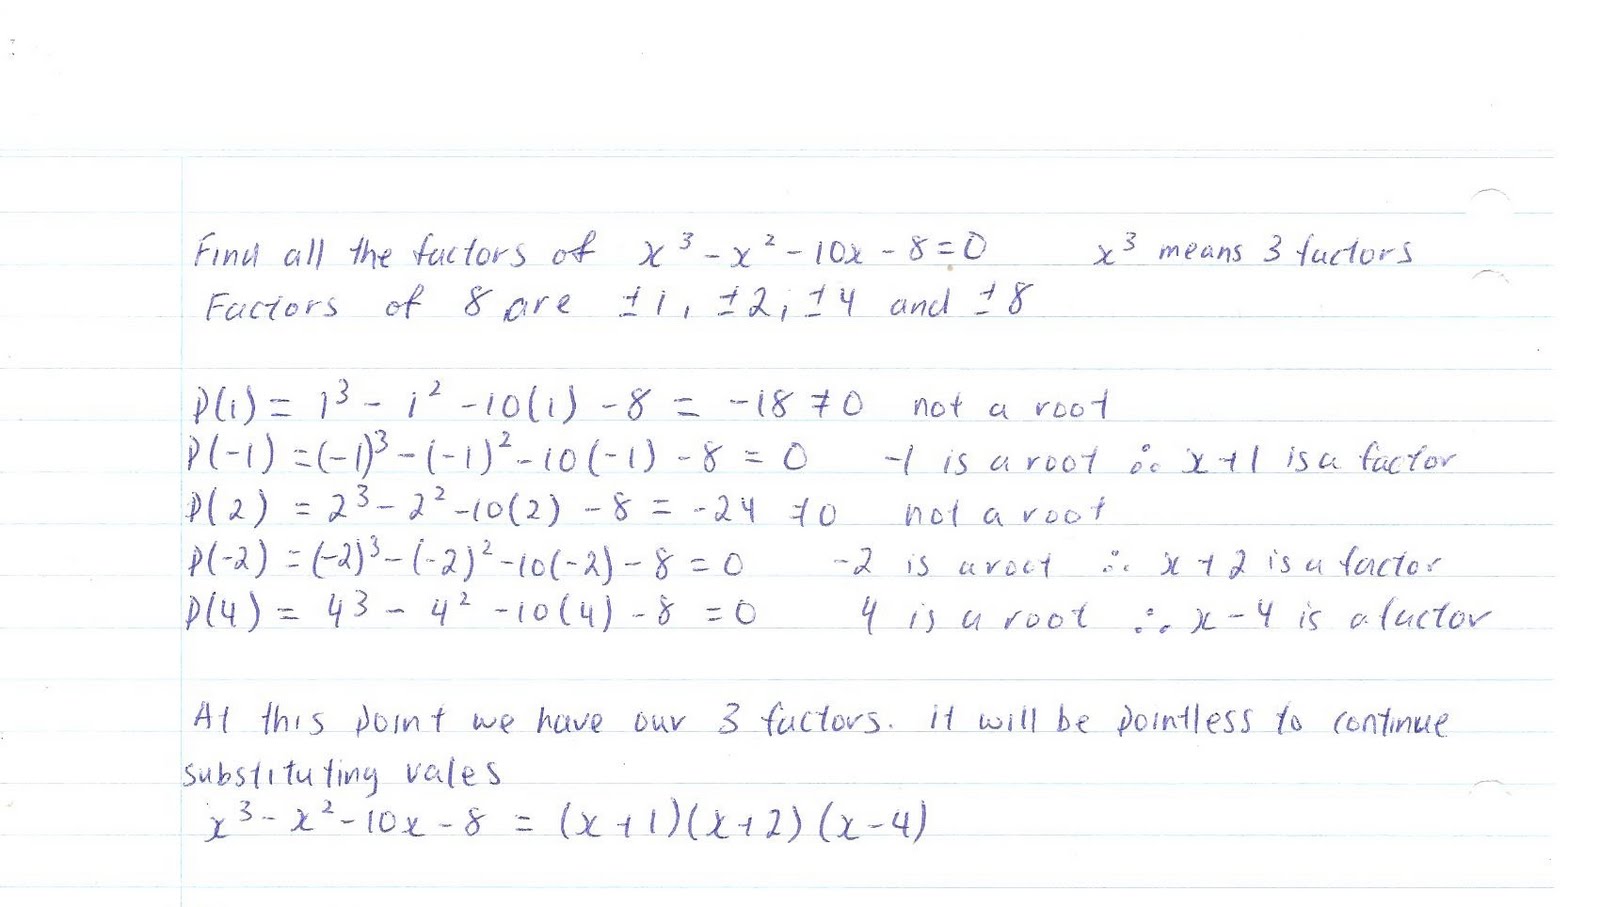 Find all the factors of x³ - x² - 10x - 8 = 0 x³ means 3 factors
Factors of 8 are ±1, ±2, ±4 and ±8
P(1) = 1³ - 1² - 10(1) - 8 = -18 ≠ 0 not a root
P(-1) = (-1)³ - (-1)² - 10(-1) - 8 = 0 -1 is a root ∴ x+1 is a factor
P(2) = 2³ - 2² - 10(2) - 8 = -24 ≠ 0 not a root
P(-2) = (-2)³ - (-2)² - 10(-2) - 8 = 0 -2 is a root ∴ x+2 is a factor
P(4) = 4³ - 4² - 10(4) - 8 = 0 4 is a root ∴ x-4 is a factor
At this point we have our 3 factors. it will be pointless to continue
substituting vales
x³ - x² - 10x - 8 = (x+1)(x+2)(x-4)